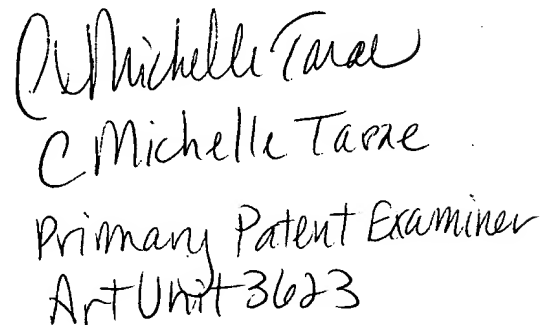 C Michelle Tarae
C Michelle Tarae
Primary Patent Examiner
Art Unit 3623